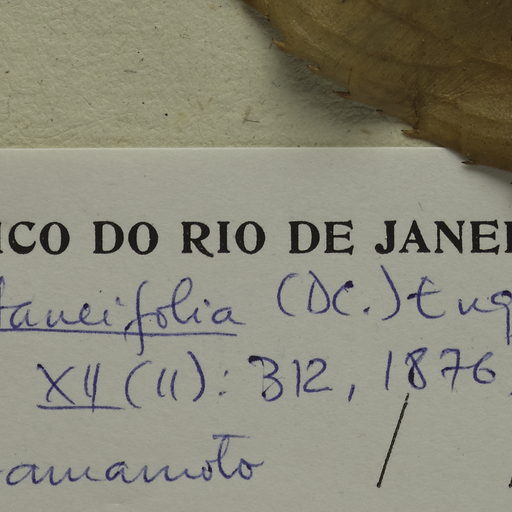 ICO DO RIO DE JANEI
taneifolia (DC.) Eng
XII (II): 312, 1876
amamoto /